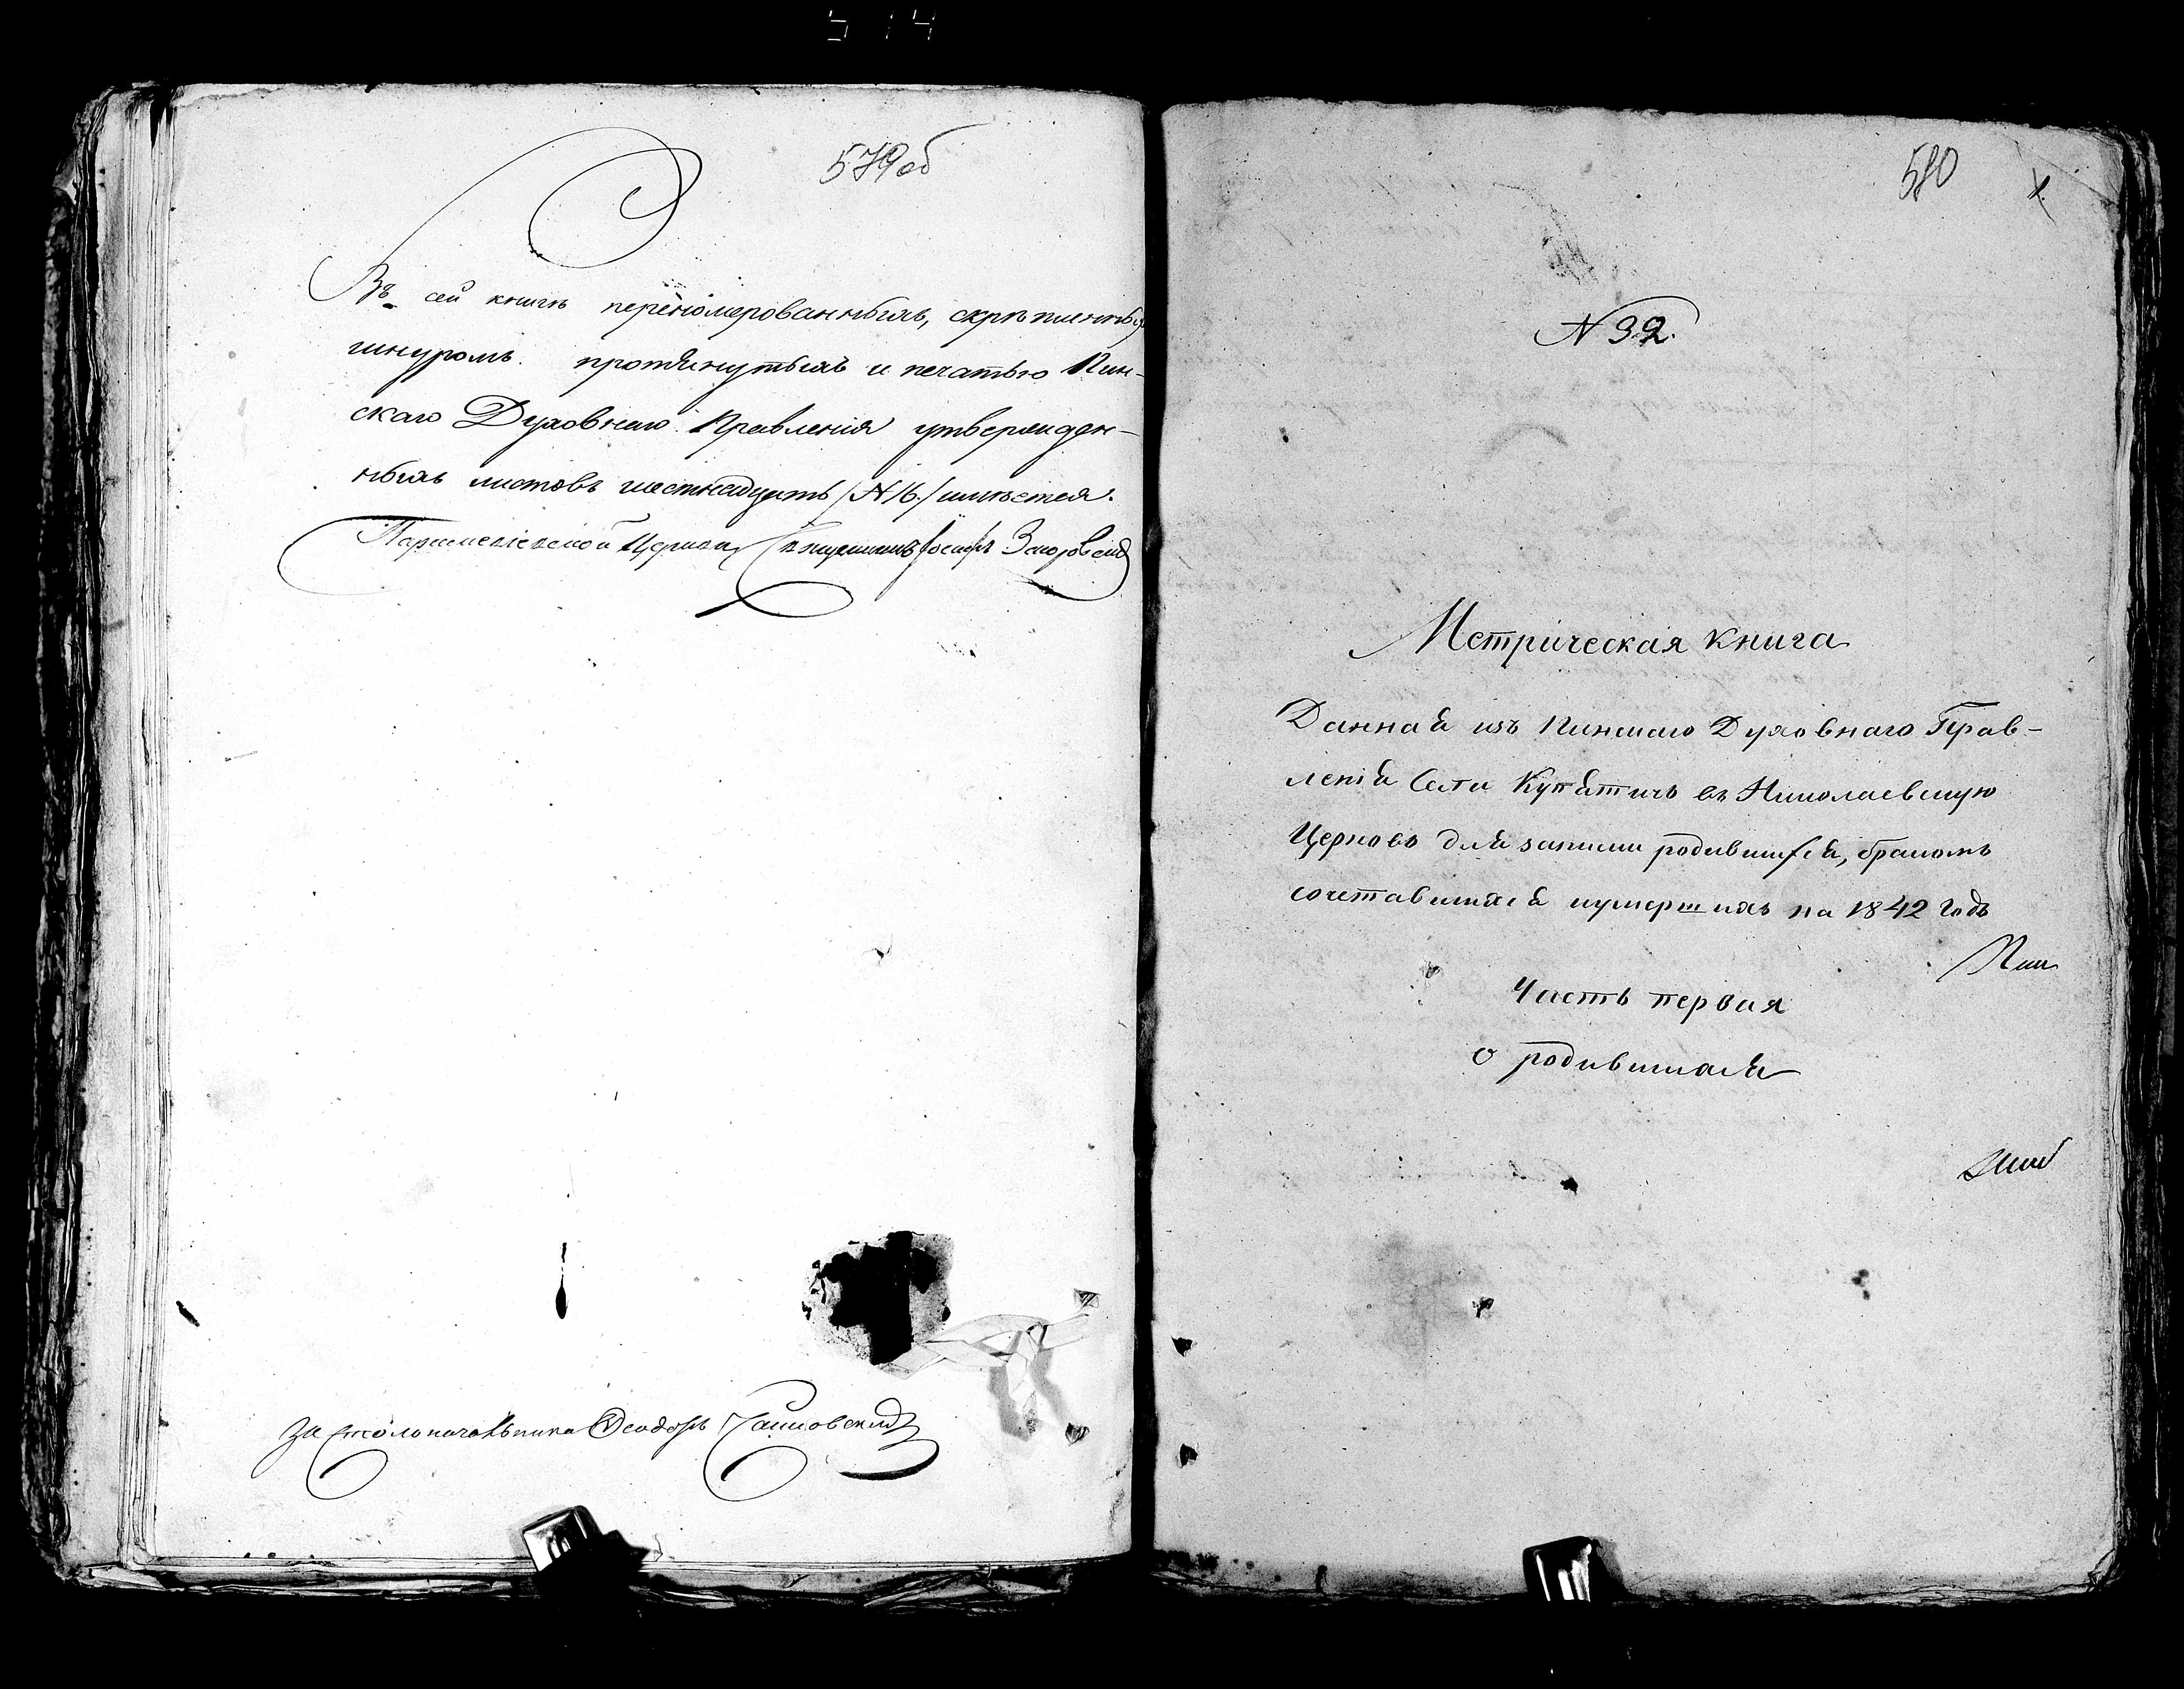 514
579об
Въ сей книгѣ переномерованныхъ, скрѣпленныхъ
шнуромъ протянутыхъ и печатью Пин-
скаго Духовнаго Правленія утвержден-
ныхъ листовъ шестнадцать /№ 16./ имѣется.
Церкви Священникъ Іосифъ
За столоначальника Ѳеодоръ
580
1.
№ 32.
Метрическая книга
Данная изъ Пинскаго Духовнаго Прав-
ленія Села Купятичъ въ Николаевскую
Церковь для записи родившихся, бракомъ
сочетавшихся и умершихъ на 1842 годъ
Пин
Часть первая
о родившихся